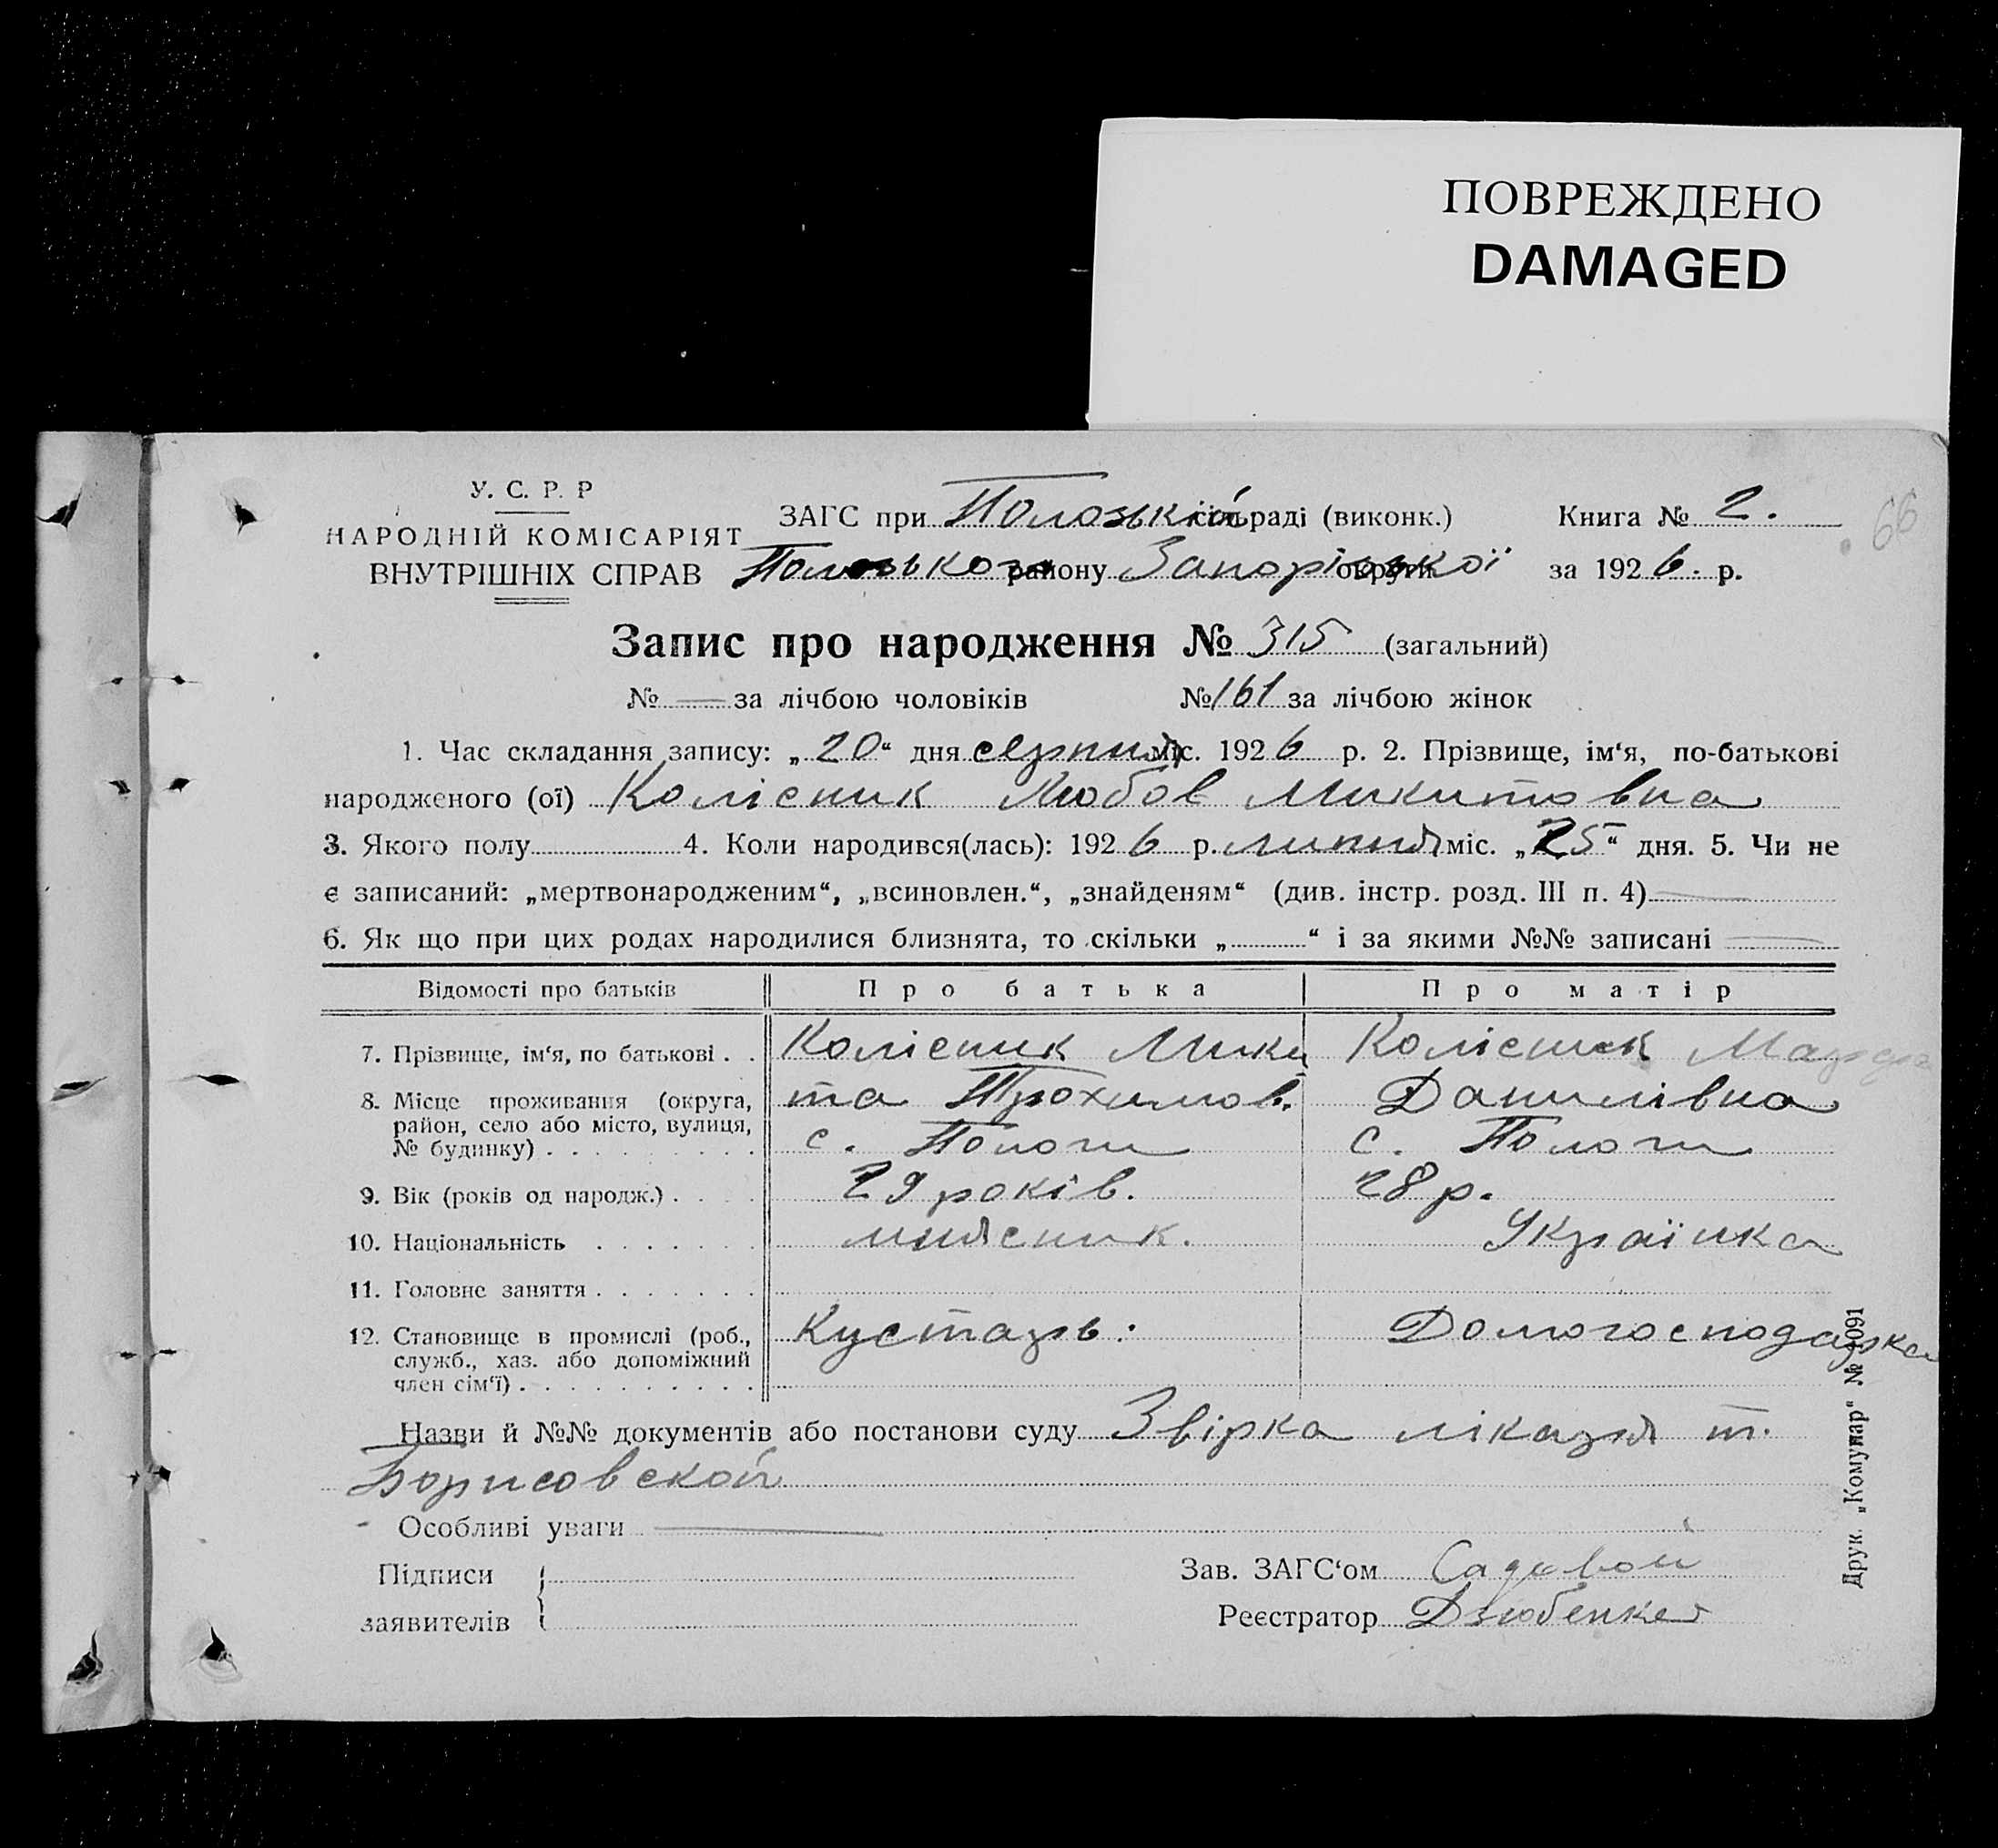 ПОВРЕЖДЕНО
DAMAGED
У. С. Р. Р
НАРОДНІЙ КОМІСАРІЯТ
ВНУТРІШНІХ СПРАВ
ЗАГС при Положькій сільраді (виконк.)
Положького району Запоріської округи
Книга № 2.
за 1926. р.
66
Запис про народження № 315 (загальний)
№ — за лічбою чоловіків №161 за лічбою жінок
1. Час складання запису: „20“ дня серпня міс. 1926 р. 2. Прізвище, ім‘я, по-батькові
народженого (ої) Колісник Любов Микитовна
3. Якого полу 4. Коли народився(лась): 1926 р. липня міс. „25“ дня. 5. Чи не
є записаний: „мертвонародженим“, „всиновлен.“, „знайденям“ (див. інстр. розд. III п. 4) —
6. Як що при цих родах народилися близнята, то скільки „ “ і за якими №№ записані —
Відомості про батьків Про батька Про матір
7. Прізвище, ім‘я, по батькові . . Колісник Мики Колісник Марфа
8. Місце проживання (округа, та Трохимов. Данилівна
район, село або місто, вулиця,
№ будинку) . . . . . . . . . с. Пологи с. Пологи
9. Вік (років од народж.) . . . 29 років. 28 р.
10. Національність . . . . . . . Українка
11. Головне заняття . . . . . . .
12. Становище в промислі (роб., Кустарь. Домогосподарка
служб., хаз. або допоміжний
член сім‘ї) . . . . . . . . . .
Назви й №№ документів або постанови суду Звірка лікаря т.
Борисовской
Особливі уваги —
Підписи
заявителів
Зав. ЗАГС‘ом Садовой
Реєстратор Дзюбенко
Друк. „Комунар“ № 1091